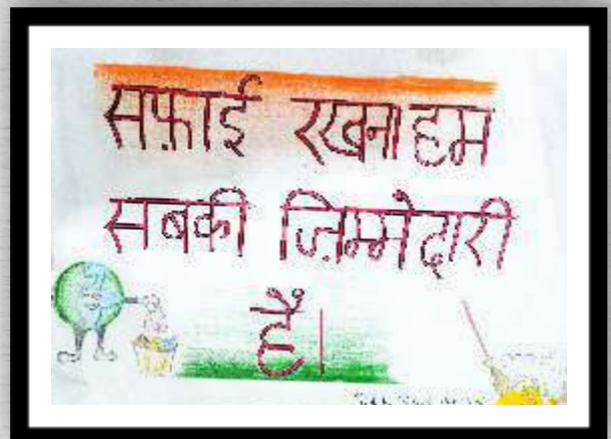 सफ़ाई रखना हम
सबकी ज़िम्मेदारी
हैं।